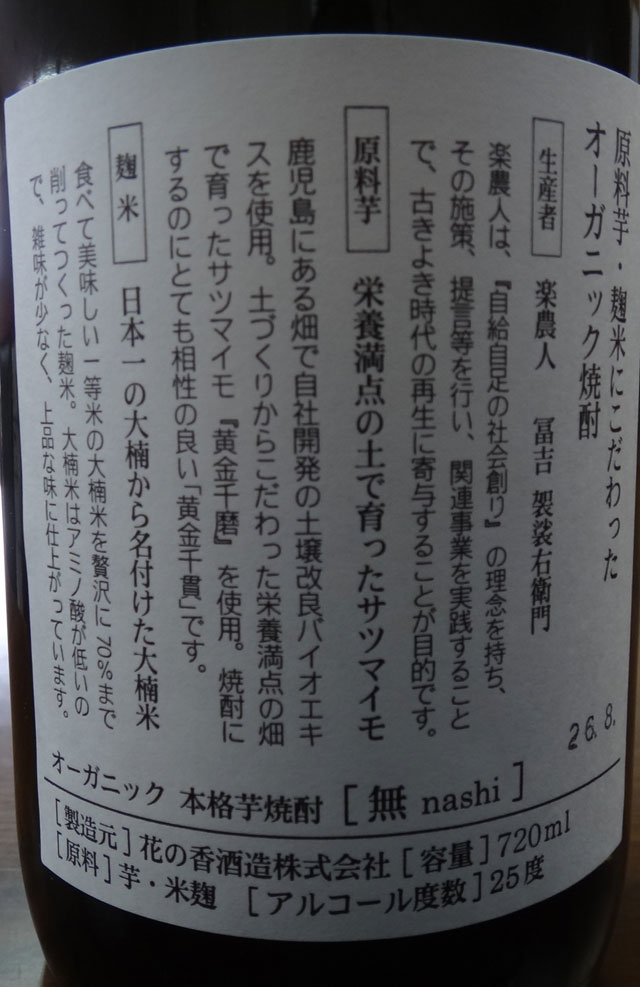 原料芋・麹米にこだわった
オーガニック焼酎
生産者 楽農人 冨吉 袈裟右衛門
楽農人は、『自給自足の社会創り』の理念を持ち、
その施策、提言等を行い、関連事業を実践すること
で、古きよき時代の再生に寄与することが目的です。
原料芋 栄養満点の土で育ったサツマイモ
鹿児島にある畑で自社開発の土壌改良バイオエキ
スを使用。土づくりからこだわった栄養満点の畑
で育ったサツマイモ『黄金千磨』を使用。焼酎に
するのにとても相性の良い「黄金千貫」です。
麹米 日本一の大楠から名付けた大楠米
食べて美味しい一等米の大楠米を贅沢に70%まで
削ってつくった麹米。大楠米はアミノ酸が低いの
で、雑味が少なく、上品な味に仕上がっています。
26.8.
オーガニック 本格芋焼酎 [ 無 nashi ]
[製造元]花の香酒造株式会社[容量]720ml
[原料]芋・米麹 [アルコール度数]25度